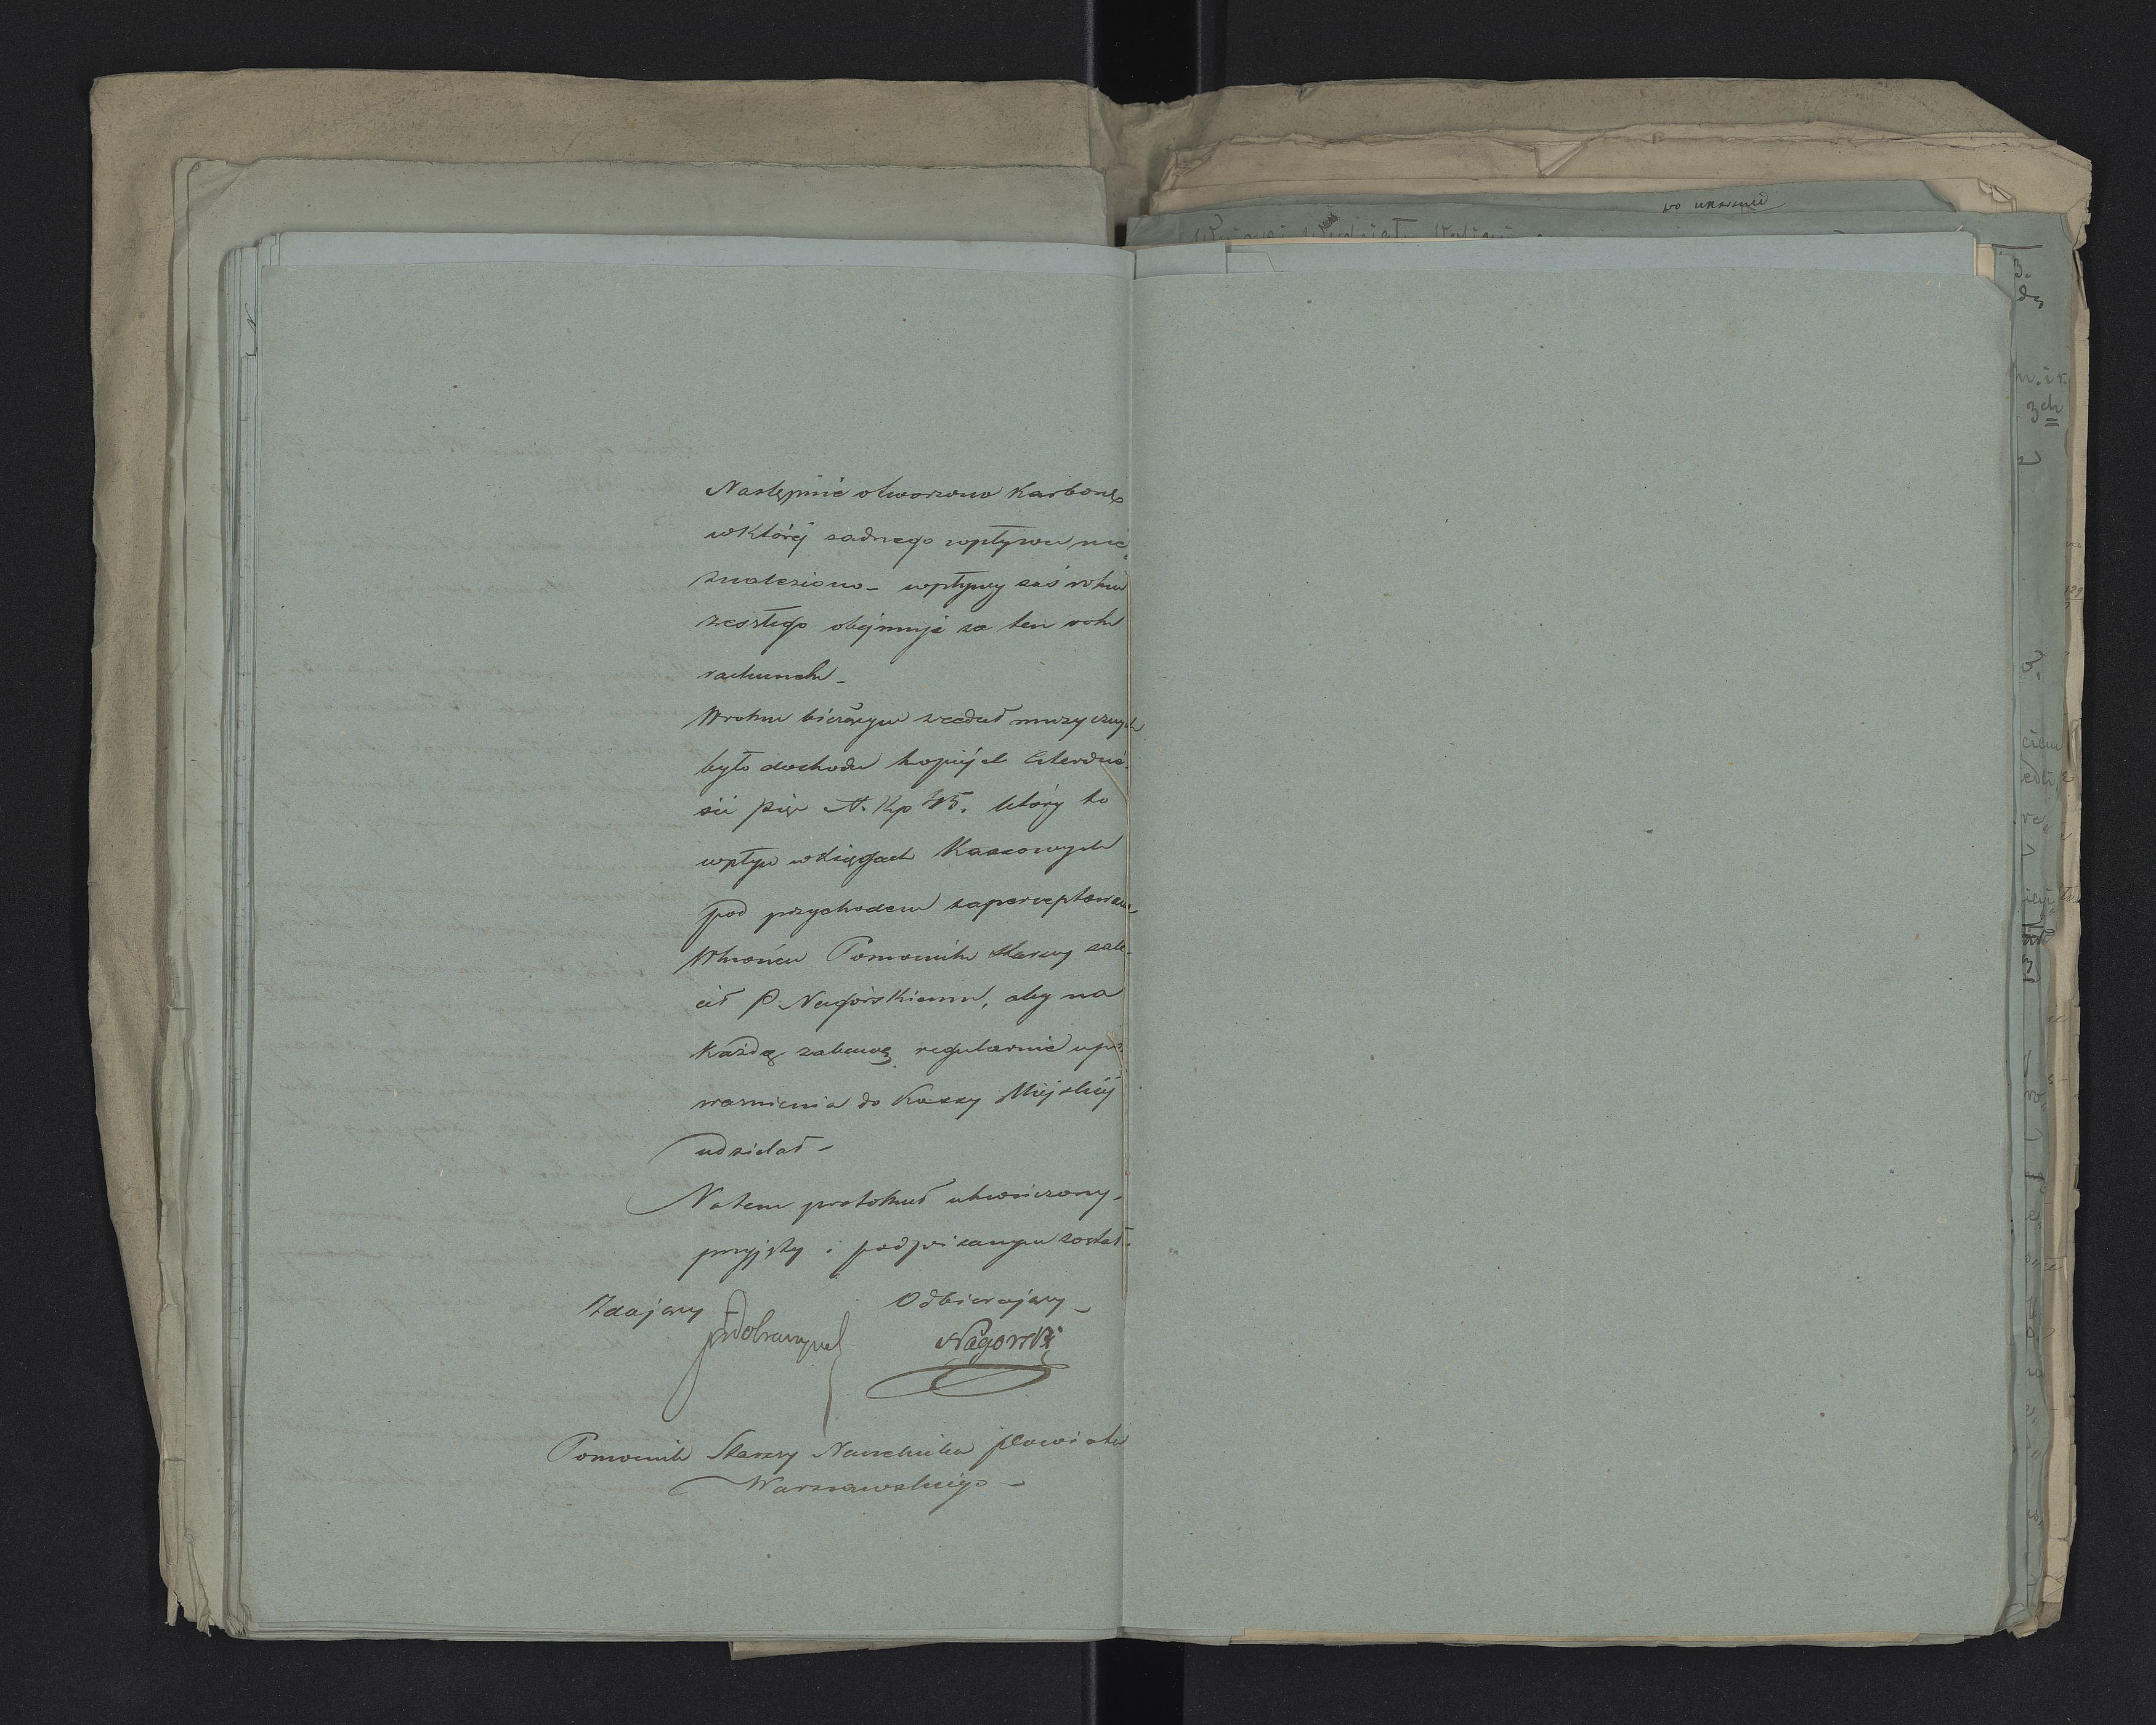 Następnie otworzono Karbonę
w której żadnego wpływu nie
znaleziono – wpływy zaś roku
zeszłego obejmuje za ten rok
rachunek –
W roku bieżącym z
muzycznych
było dochodu kopiejek czterdzie-
ści pięć N. Kp 45. który to
wpływ w księgach Kassowych
pod przychodem zaperceptowano
W końcu Pomocnik Starszy zale-
cił P. Nagórskiemu, aby na
każdą zabawę regularnie upo-
ważnienia do Kassy Miejskiej
udzielał –
Na tem protokuł ukończony,
przyjęty i podpisanym został.
Zdający
Odbierający –
Nagorski
Pomocnik Starszy Naczelnika Powiatu
Warszawskiego –